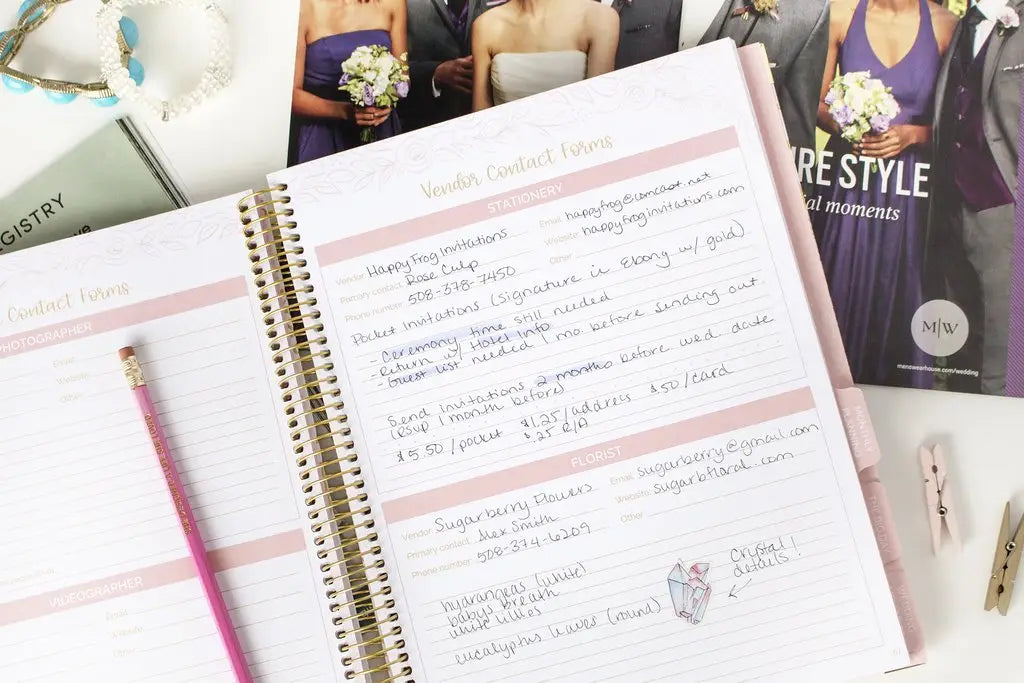 EGISTRY
Contact Forms
PHOTOGRAPHER
Email
Website
Other
VIDEOGRAPHER
Email
Website
Other
Vendor Contact Forms
STATIONERY
Vendor Happy Frog Invitations
Primary contact Rose Culp
Phone number 508-378-7450
Email happyfrog@comcast.net
Website happyfroginvitations.com
Other
Pocket Invitations (Signature in Ebony w/ gold)
- Ceremony time still needed
- Return w/ Hotel Info
- Guest list needed 1 mo. before sending out.
Send invitations 2 months before wed. date
(RSVP 1 month before)
$5.50/pocket $1.25/address $.50/card
$.25 R/A
FLORIST
Vendor Sugarberry Flowers
Primary contact Alex Smith
Phone number 508-374-6209
Email sugarberry@gmail.com
Website sugarbfloral.com
Other
hydrangeas (white)
babys breath
white lillies
eucalyptus leaves (round)
Crystal
details!
MONTHLY
PLANNING
THE BIG DAY
RE STYLE
ial moments
M|W
menswearhouse.com/wedding